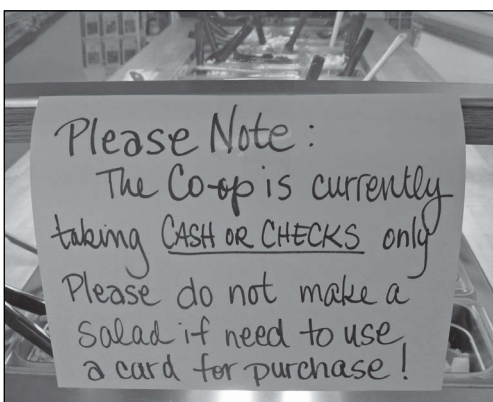 Please Note:
The Co-op is currently
taking CASH OR CHECKS only
Please do not make a
salad if need to use
a card for purchase!